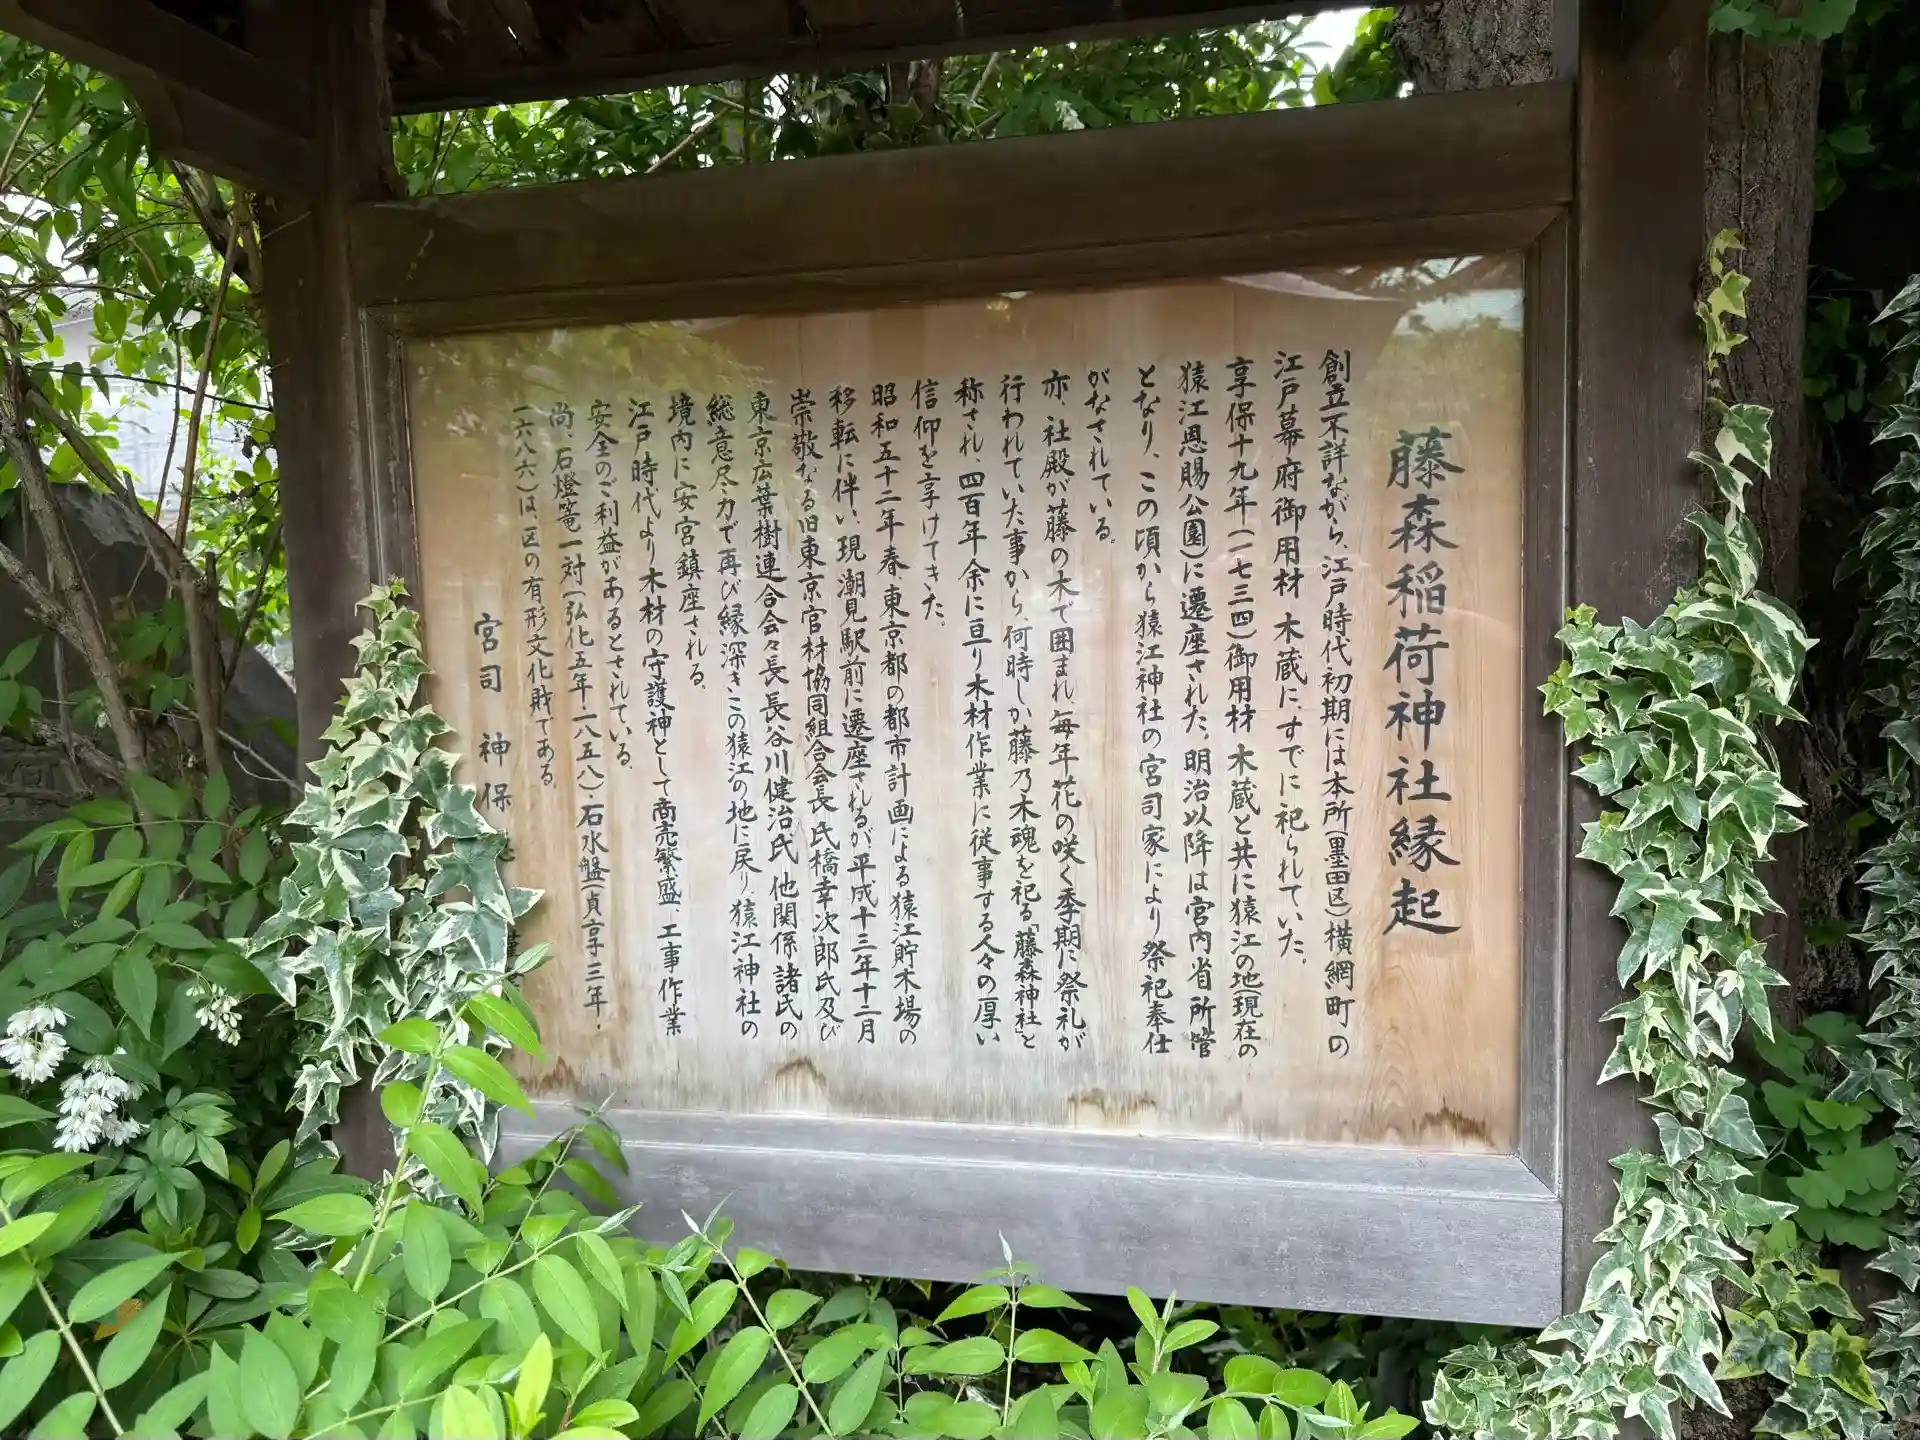 藤森稲荷神社縁起
創立不詳ながら、江戸時代初期には本所(墨田区)横網町の
江戸幕府御用材木蔵にすでに祀られていた。
享保十九年(一七三四)御用材木蔵と共に猿江の地(現在の
猿江恩賜公園)に遷座された。明治以降は宮内省所管
となり、この頃から猿江神社の宮司家により祭祀奉仕
がなされている。
亦、社殿が藤の木で囲まれ、毎年花の咲く季期に祭礼が
行われていた事から、何時しか藤乃木魂を祀る「藤森神社」と
称され、四百年余に亘り木材作業に従事する人々の厚い
信仰を享けてきた。
昭和五十二年春、東京都の都市計画による猿江貯木場の
移転に伴い、現潮見駅前に遷座されるが平成十三年十二月
崇敬なる旧東京官材協同組合会長氏橋幸次郎氏及び
東京広葉樹連合会々長長谷川健治氏他関係諸氏の
総意尽力で再び縁深きこの猿江の地に戻り、猿江神社の
境内に安宮鎮座される。
江戸時代より木材の守護神として商売繁盛、工事作業
安全のご利益があるとされている。
尚、石燈篭一対(弘化五年・一八五八)・石水盤(貞享三年・
一六八六)は、区の有形文化財である。
宮司 神保